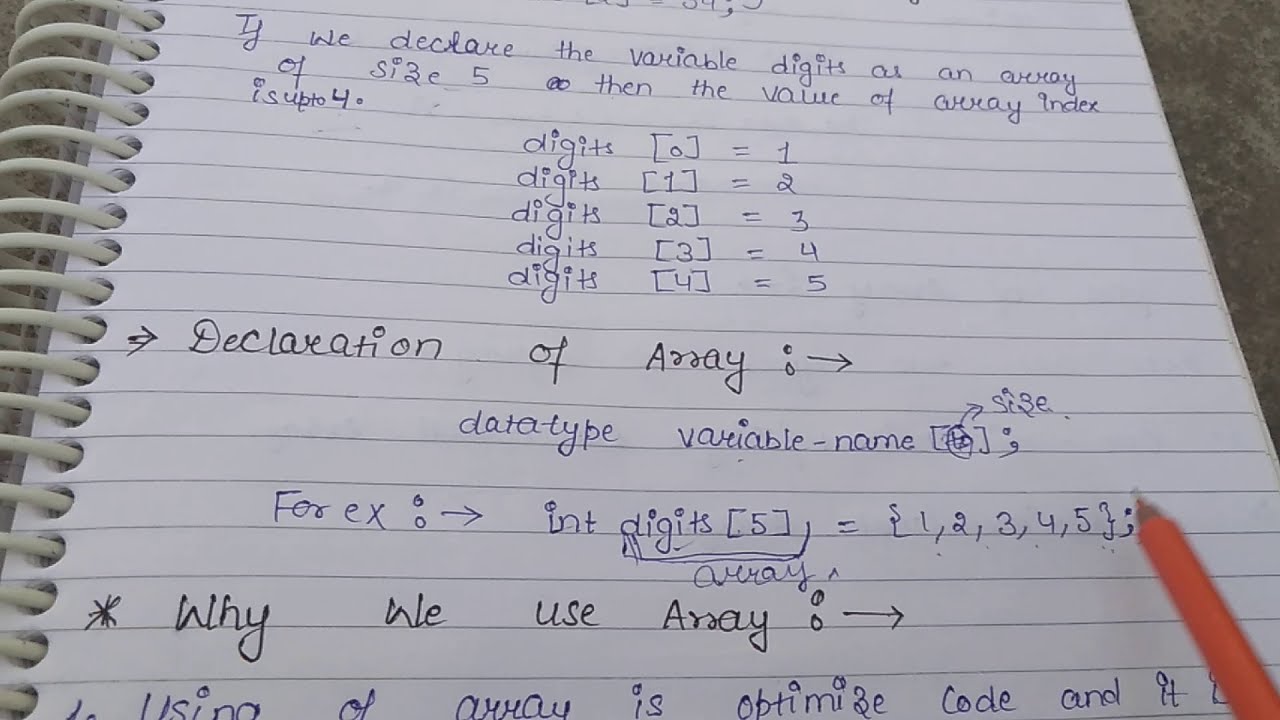 If we declare the variable digits as an array
of size 5 then the value of array index
is upto 4.
digits [0] = 1
digits [1] = 2
digits [2] = 3
digits [3] = 4
digits [4] = 5
⇒ Declaration of Array :→
size
datatype variable-name [ ];
For ex :→ int digits [5] = {1,2,3,4,5};
array
* Why We use Array :→
1. Using of array is optimize code and it